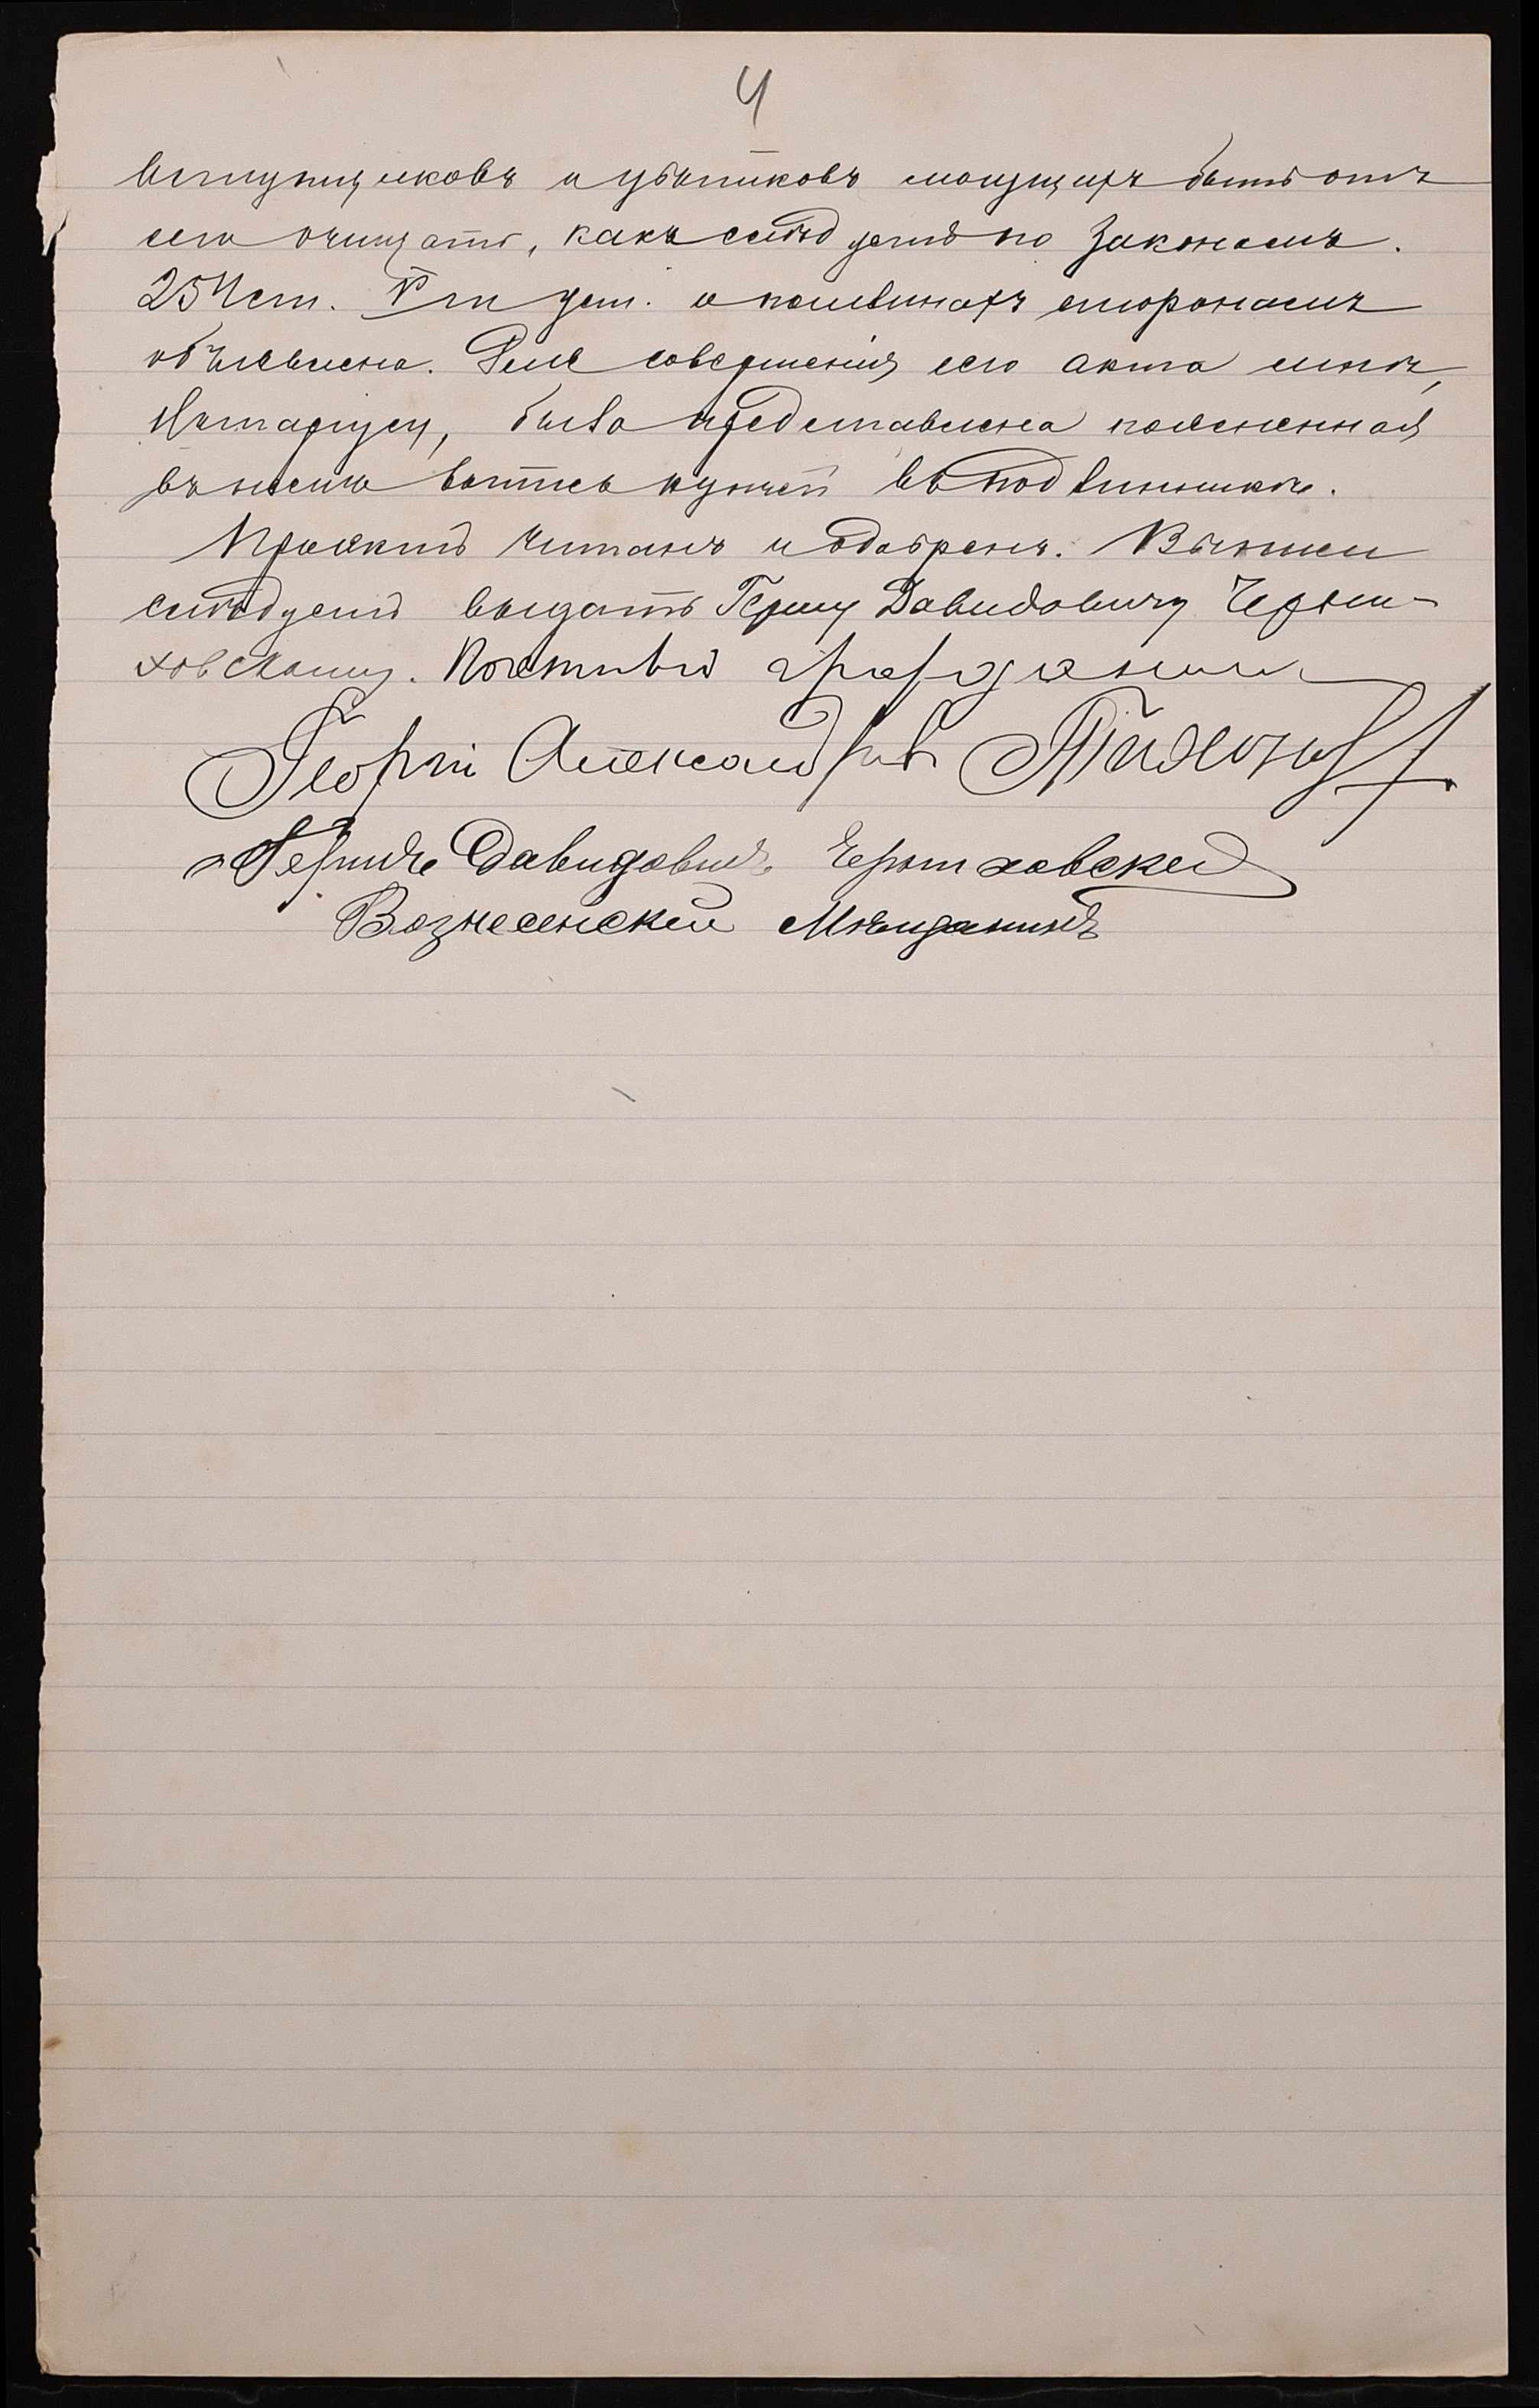 4
вступщиковъ и убытковъ могущихъ быть отъ
сего очищать, какъ слѣдуетъ по законамъ.
254 ст. V т. уст. о пошлинахъ сторонамъ
объявлена. Для совершенія сего акта мнѣ,
Нотаріусу, была представлена поясненная
въ немъ купчей въ подлинникѣ.
Проэктъ читанъ и одобренъ. Выпись
слѣдуетъ выдать Гершу Давидовичу Черня-
ховскому. Почетный гражданинъ
Георгій Александровъ Тихоновъ
Гершъ Давидовичъ Черняховскій
Вознесенскій Мѣщанинъ